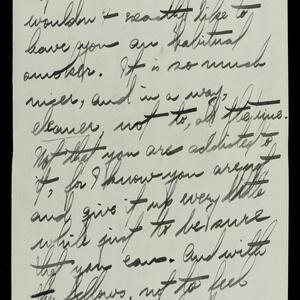 wouldn't exactly like to
have you an habitual
smoker. It is so much
nicer, and in a way,
cleaner, not to, all the time.
Not that you are addicted to
it, for I know you are not
and give it up every little
while just to be sure
that you can. And with
the fellows, not to feel